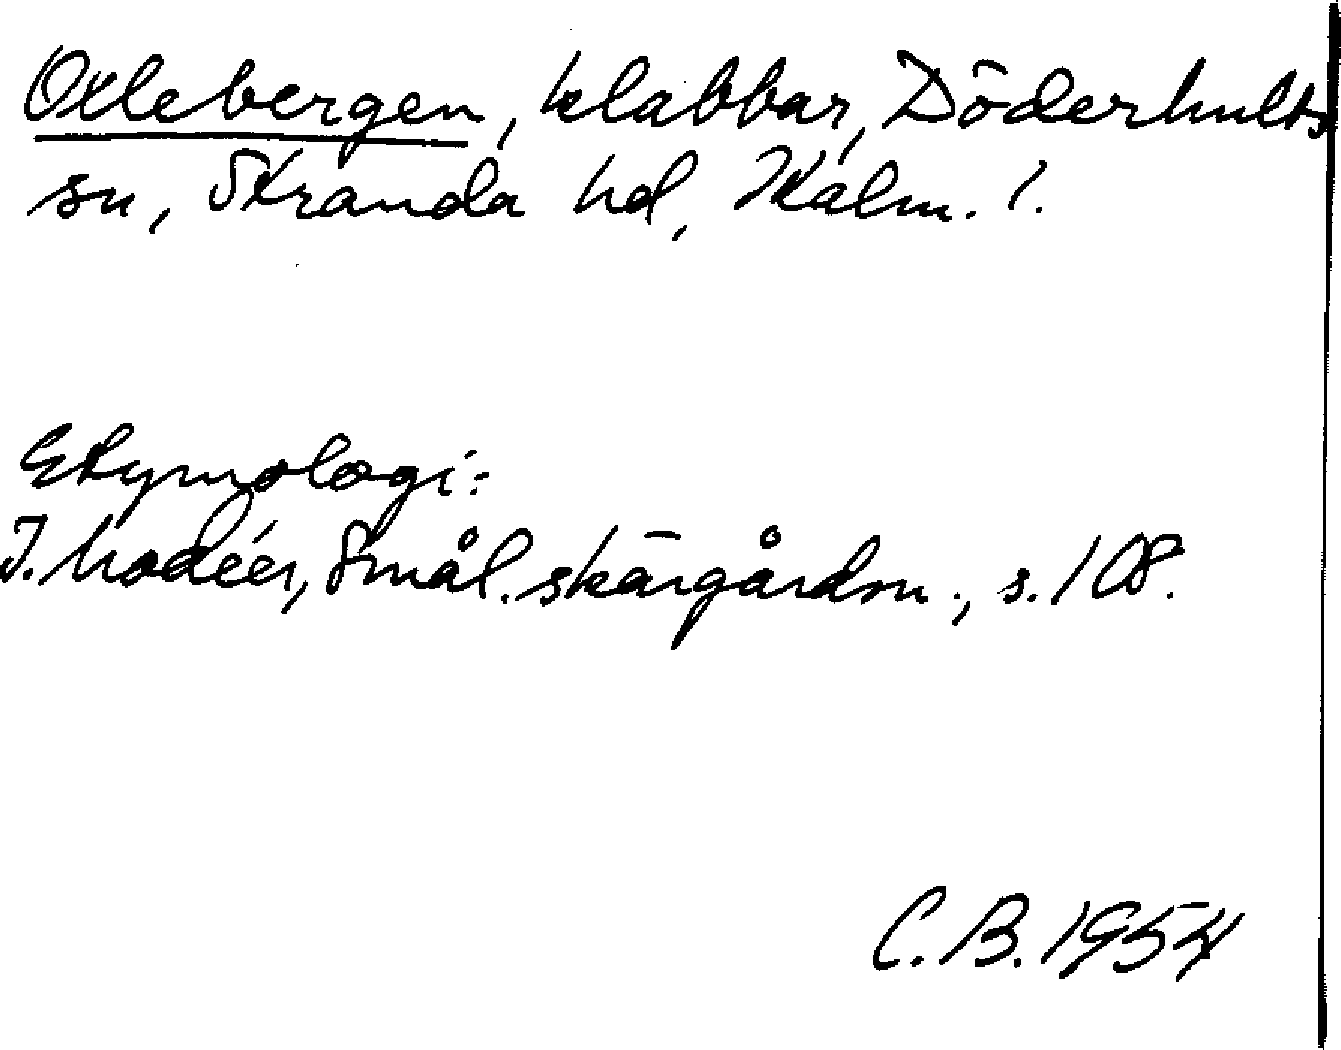 Oxlebergen, klabbar, Döderhults
sn, Stranda hd, Kalm. l.
Etymologi:
I. Modéer, Smål. skärgårdsn., s. 108.
C. B. 1954